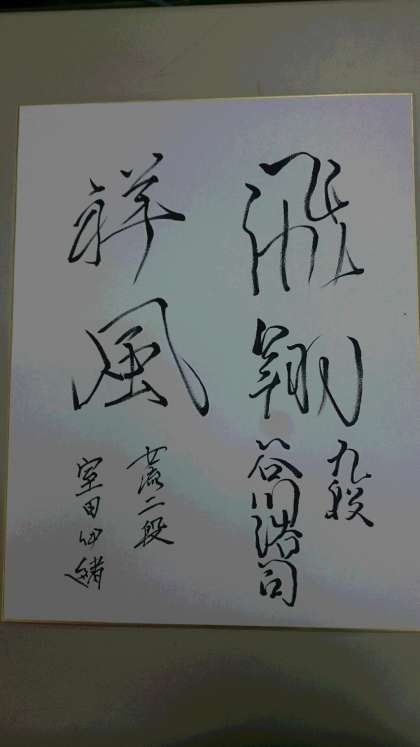 飛翔
九段
谷川浩司
祥風
女流二段
室田伊緒